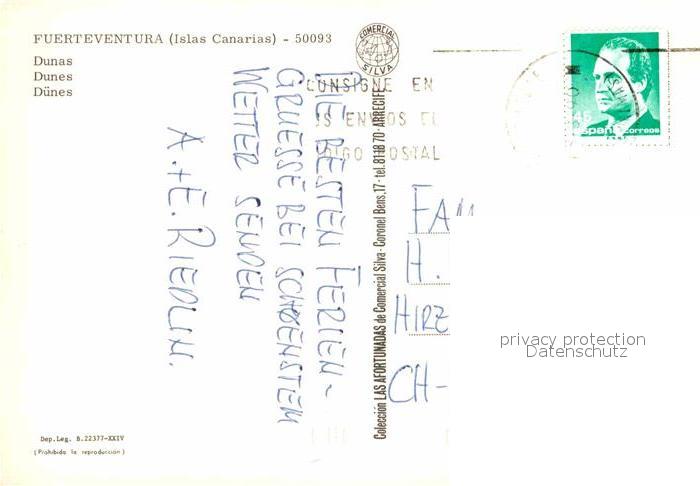 FUERTEVENTURA (Islas Canarias) - 50093
Dunas
Dunes
Dünes
COMERCIAL
SILVA
CONSIGNE EN
ENVIOS EL
CODIGO POSTAL
45
España correos
DIE BESTEN FERIEN-
GRUESSE BEI SCHOENSTEM
WETTER SENDEN
A. + E. RIEDLIN.
Colección LAS AFORTUNADAS de Comercial Silva - Coronel Bens, 17 - tel. 81 18 70 - ARRECIFE
FAM
H.
HIRZ
CH-
privacy protection
Datenschutz
Dep. Leg. B. 22377-XXIV
(Prohibida la reproducción)